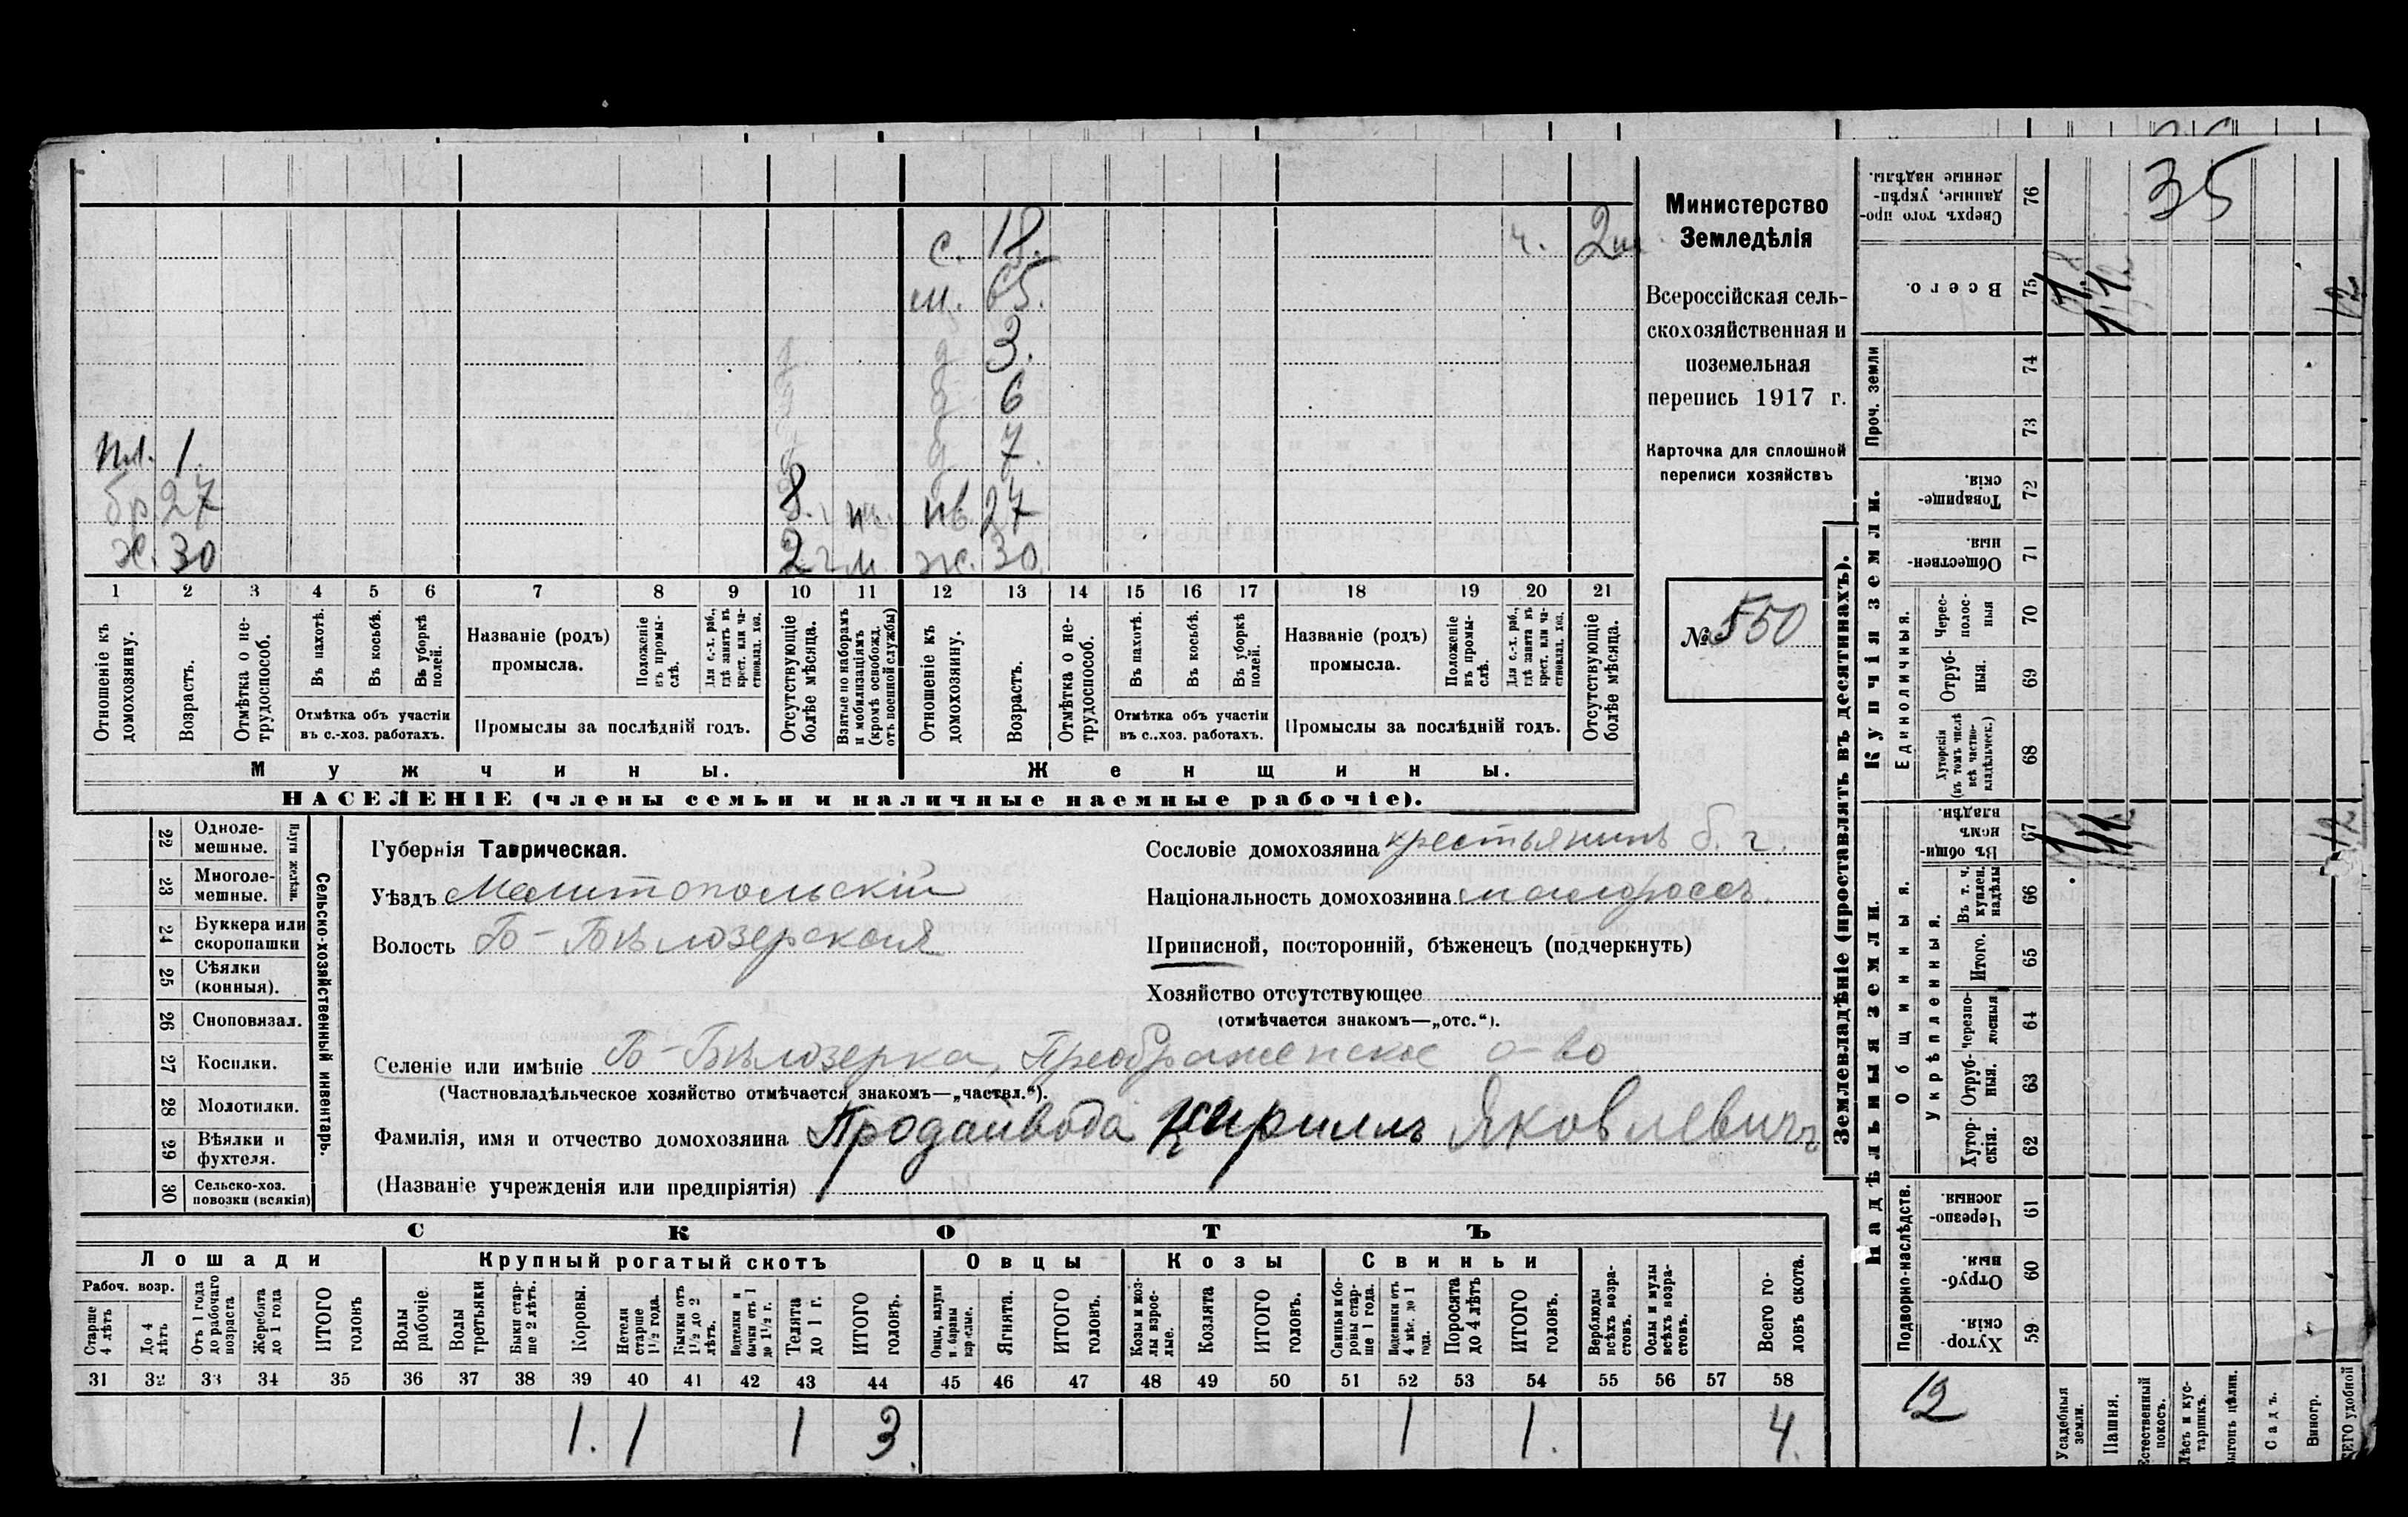 с. 18. ч. 2
м. 65.
д. д 3.
д д 6
мл. 1. д д. 7.
бр 27 8. нв. 27
ж. 30 2 ж. 30
1 2 3 4 5 6 7 8 9 10 11 12 13 14 15 16 17 18 19 20 21
Отношеніе къ домохозяину.
Возрастъ.
Отмѣтка о не-трудоспособ.
Въ пахотѣ.
Въ косьбѣ.
Въ уборкѣ полей.
Отмѣтка объ участіи
въ с.-хоз. работахъ.
Названіе (родъ)
промысла.
Положеніе въ промы-слѣ.
Для с.-х. раб., гдѣ занятъ въ крест. или ча-стновлад. хоз.
Промыслы за послѣдній годъ.
Отсутствующіе болѣе мѣсяца.
Взятые по наборамъ и мобилизаціямъ (кромѣ освобожд. отъ военной службы)
Отношеніе къ домохозяину.
Возрастъ.
Отмѣтка о не-трудоспособ.
Въ пахотѣ.
Въ косьбѣ.
Въ уборкѣ полей.
Отмѣтка объ участіи
въ с..хоз. работахъ.
Названіе (родъ)
промысла.
Положеніе въ промы-слѣ.
Для с.-х. раб., гдѣ занята въ крест. или ча-стновлад. хоз.
Промыслы за послѣдній годъ.
Отсутствующіе болѣе мѣсяца.
Мужчины. Женщины.
НАСЕЛЕНІЕ (члены семьи и наличные наемные рабочіе).
Министерство
Земледѣлія
Всероссійская сель-
скохозяйственная и
поземельная
перепись 1917 г.
Карточка для сплошной
переписи хозяйствъ
№ 550
22 Одноле-мешные.
23 Многоле-мешные.
Плуги желѣзн.
24 Буккера или скоропашки
25 Сѣялки (конныя).
26 Сноповязал.
27 Косилки.
28 Молотилки.
29 Вѣялки и фухтеля.
30 Сельско-хоз. повозки (всякія)
Сельско-хозяйственный инвентарь.
Губернія Таврическая.
Уѣздъ Мелитопольскій
Волость Б-Бѣлозерская
Сословіе домохозяина крестьянинъ б. г.
Національность домохозяина малороссъ.
Приписной, посторонній, бѣженецъ (подчеркнуть)
Хозяйство отсутствующее
(отмѣчается знакомъ—„отс.“).
Селеніе или имѣніе Б-Бѣлозерка, Преображенское о-во
(Частновладѣльческое хозяйство отмѣчается знакомъ—„частвл.“).
Фамилія, имя и отчество домохозяина Продайвода Кириллъ Яковлевичъ
(Названіе учрежденія или предпріятія)
СКОТЪ
Лошади Крупный рогатый скотъ Овцы Козы Свиньи
Рабоч. возр.
Старше 4 лѣтъ
До 4 лѣтъ
Отъ 1 года до рабочаго возраста
Жеребята до 1 года
ИТОГО головъ
Волы рабочіе.
Волы третьяки
Быки стар-ше 2 лѣтъ.
Коровы.
Нетели старше 1½ года.
Бычки отъ 1½ до 2 лѣтъ.
Подтелки и бычки отъ 1 до 1½ г.
Телята до 1 г.
ИТОГО головъ.
Овцы, валухи и бараны взрослые.
Ягнята.
ИТОГО головъ.
Козы и коз-лы взрос-лые.
Козлята
ИТОГО головъ.
Свиньи и бо-ровы стар-ше 1 года.
Подсвинки отъ 4 мѣс. до 1 года.
Поросята до 4 лѣтъ
ИТОГО головъ.
Верблюды всѣхъ возра-стовъ.
Ослы и мулы всѣхъ возра-стовъ.
Всего го-ловъ скота.
31 32 33 34 35 36 37 38 39 40 41 42 43 44 45 46 47 48 49 50 51 52 53 54 55 56 57 58
1. 1 1 3 1 1. 4.
Землевладѣніе (проставлять въ десятинахъ).
Надѣльныя земли. Купчія земли.
Сверхъ того про-данные, укрѣп-ленные надѣлы. 76 35
Всего. 75 12
Проч. земли
74
73
Товарище-скія. 72
Обществен-ныя. 71
Единоличныя.
Черес-полос-ныя 70
Отруб-ныя. 69
Хуторскія (въ томъ числѣ всѣ частно-владѣльческ.) 68
Общинныя.
Въ общи-номъ владѣн. 67 12
Укрѣпленныя.
Въ т. ч. куплен. надѣлы 66
Итого. 65
Черезпо-лосныя 64
Отруб-ныя. 63
Хутор-скія. 62
Подворно-наслѣдств.
Черезпо-лосныя. 61
Отруб-ныя. 60
Хутор-скія. 59
12
Усадебныя земли.
Пашня.
Естественный покосъ.
Лѣсъ и кус-тарник.
Выгонъ цѣлин.
Садъ.
Виногр.
удобной